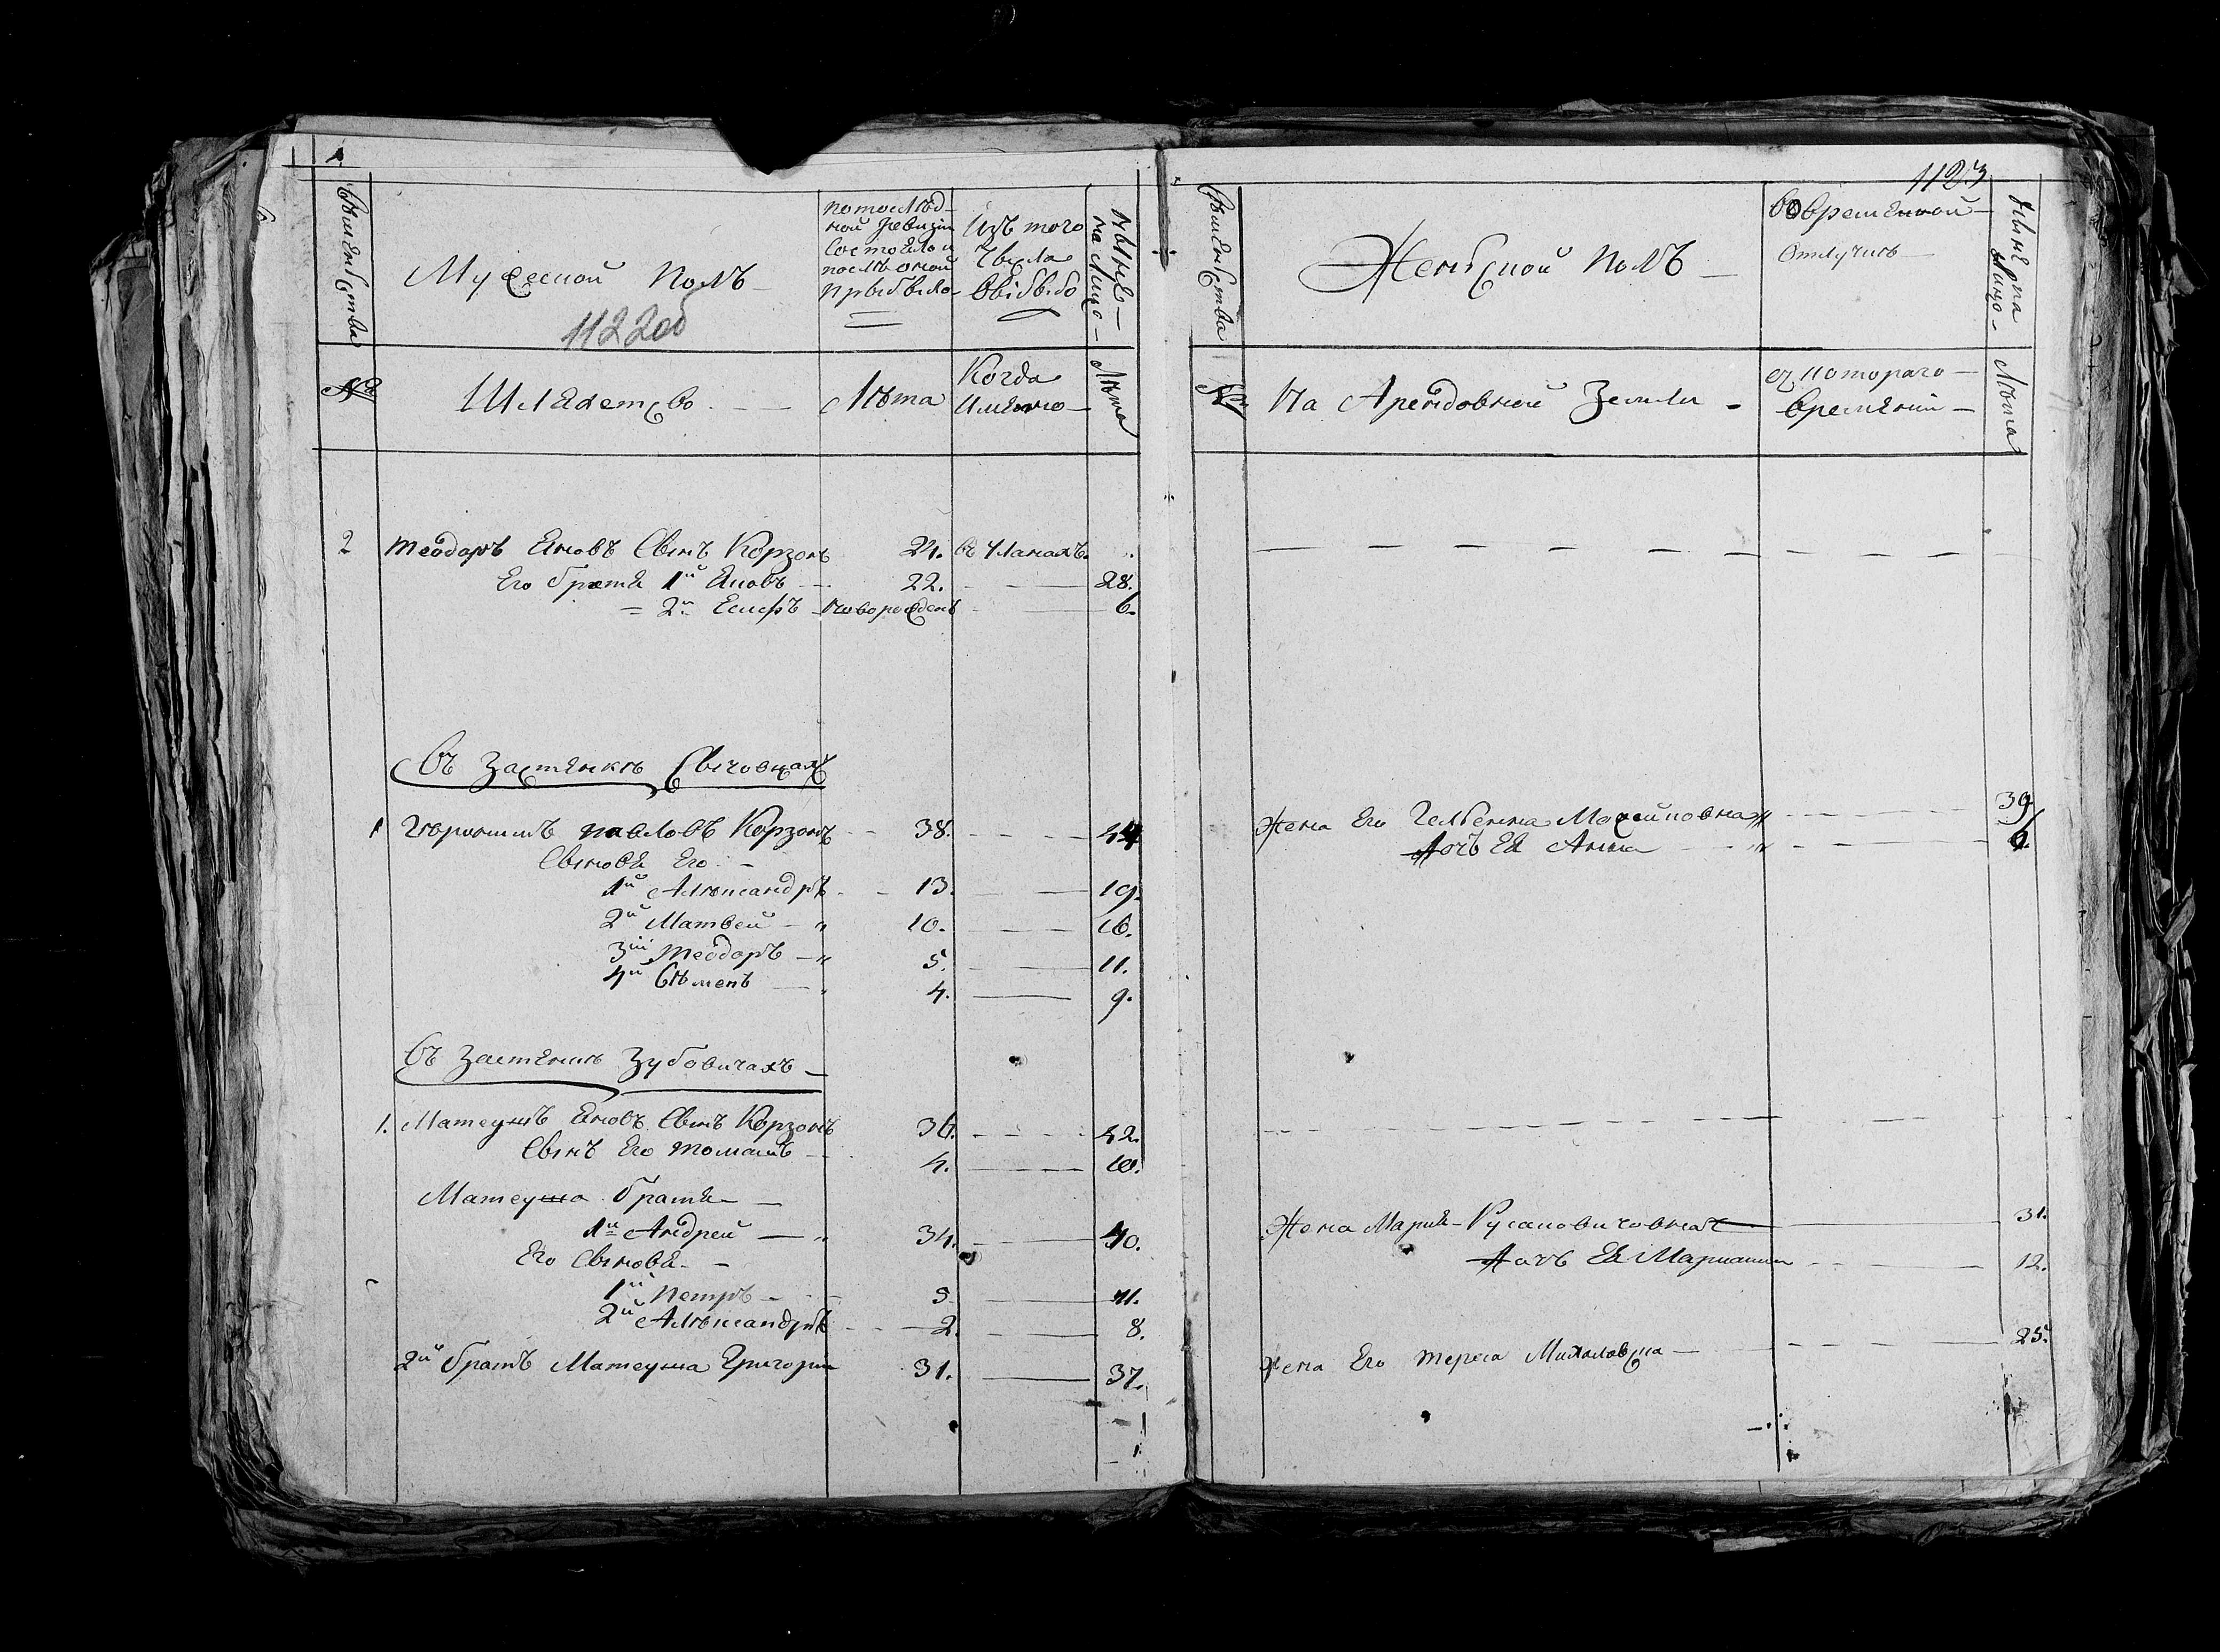 1.
Мужеской Полъ
1122об
По послѣд-
ней Ревизіи
Состояло и
послѣ оной
прыбыло
Изъ того
Чысла
Выбыло
Нынѣ
на Лицо
№
Шляхетсво
Лѣта
Когда
Именно
Лѣта
2 Теодоръ Яновъ Сынъ Корзонъ 24. в Уланахъ.
Его братя 1й Яновъ 22. 28.
2й Есифъ новорожденъ 6.
Въ Застянкѣ
1 Геронимъ Павловъ Корзонъ 38. 44
Сыновя Его
1й Алѣксандръ 13. 19.
2й Матвей 10. 16.
3ій Теодоръ 5. 11.
4й Сѣменъ 4. 9.
Въ Застянкѣ Зубовичахъ
1. Матеушъ Яновъ Сынъ Корзонъ 36. 42.
Сынъ Его Томашъ 4. 10.
Матеуша братя
1й Андрей 34. 40.
Его Сыновя
1й Петръ 5. 11.
2й Алѣксандръ 2. 8.
2й братъ Матеуша Григорій 31. 37.
1123
Женской Полъ
Во времянной
Отлучкѣ
Нынѣ на
Лицо
№
На Арендовной Земли
съ котораго
времяни
Лѣта
Жена Его 39
Дочъ Ея Анна 6.
Жена Марія 31.
Дочъ Ея Марианна 12.
Жена Его Тереса 25.